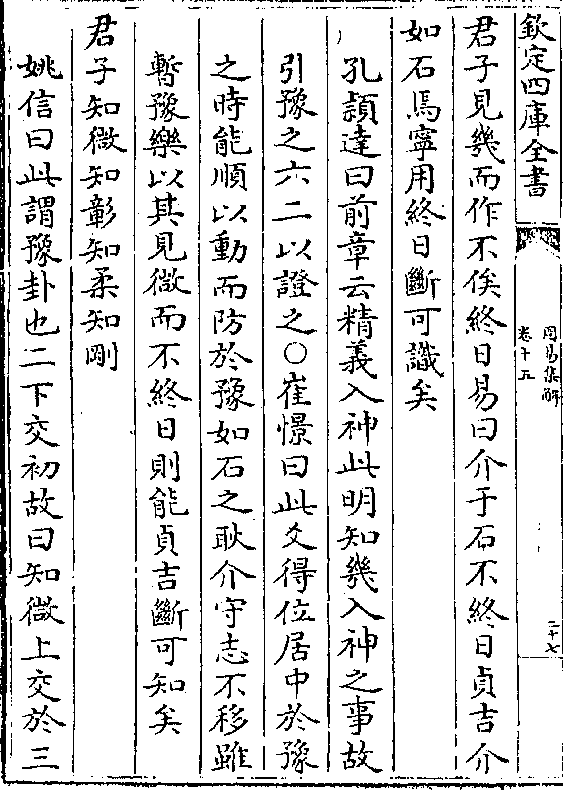 欽定四庫全書
周易集解
卷十五
二十七
君子見幾而作不俟終日易曰介于石不終日貞吉介
如石焉寧用終日斷可識矣
孔頴達曰前章云精義入神此明知幾入神之事故
引豫之六二以證之○崔憬曰此爻得位居中於豫
之時能順以動而防於豫如石之耿介守志不移雖
暫豫樂以其見微而不終日則能貞吉斷可知矣
君子知微知彰知柔知剛
姚信曰此謂豫卦也二下交初故曰知微上交於三